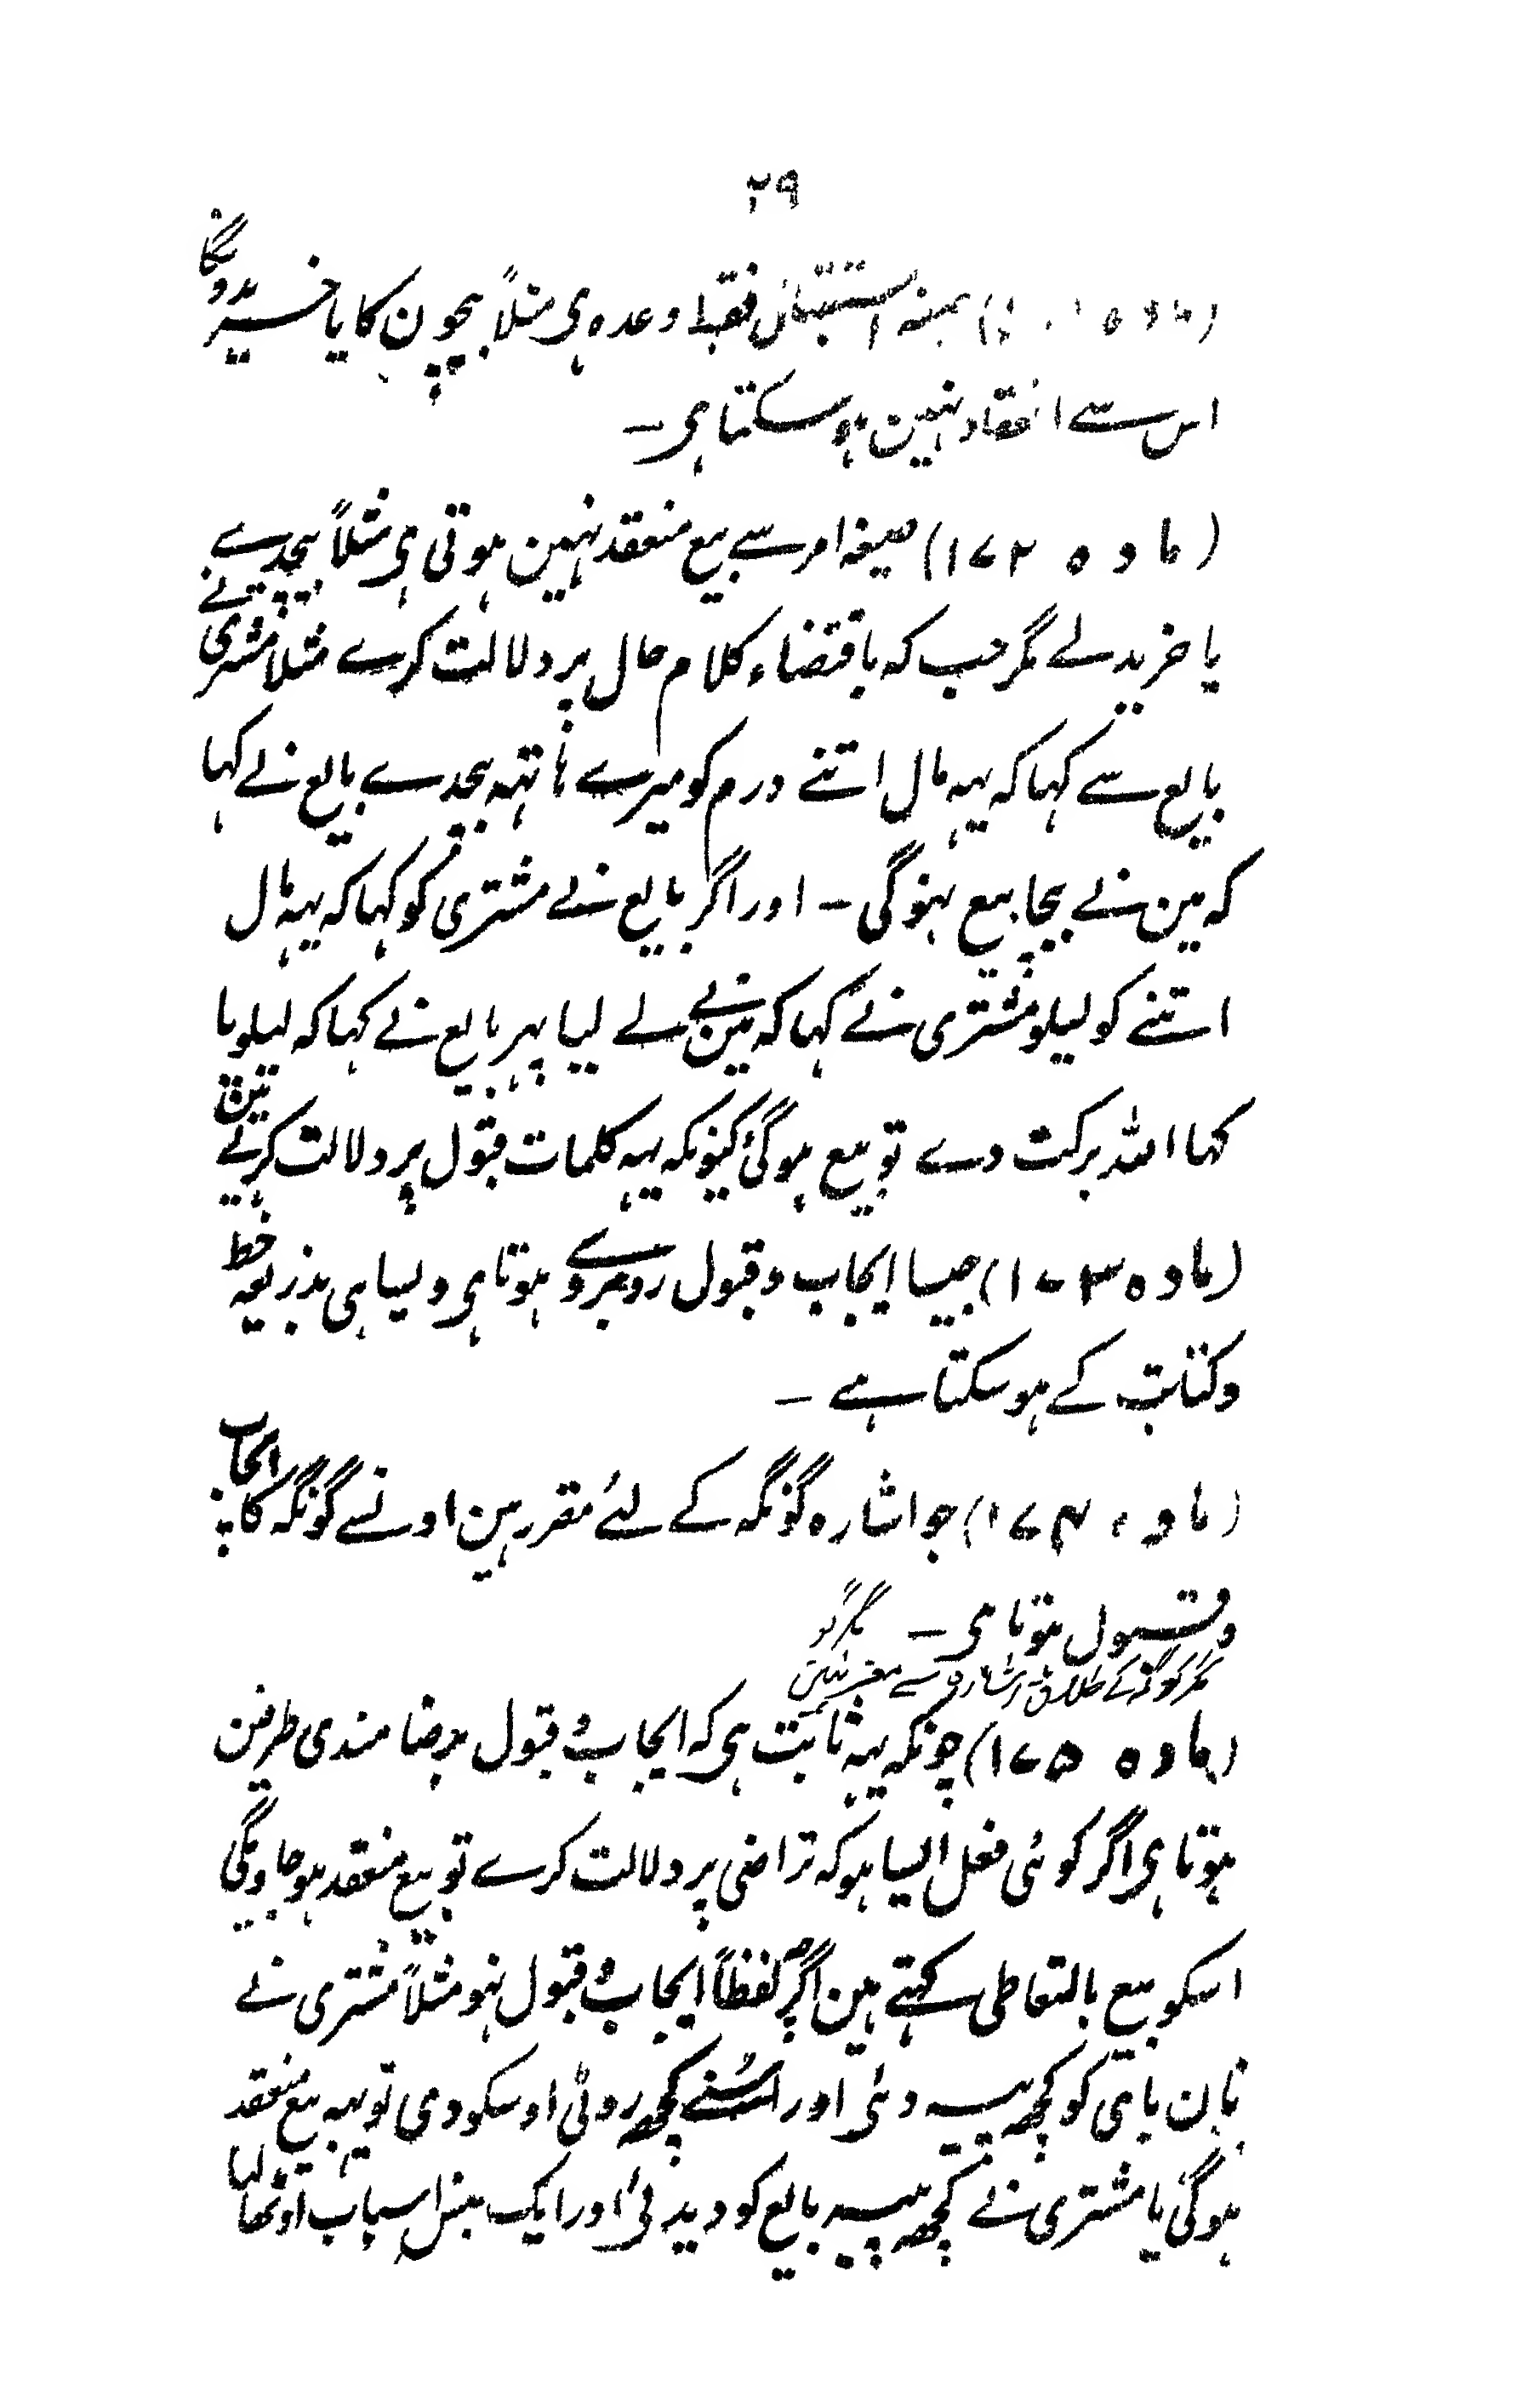 ۲۹
(مادہ ۱۷۱) صیغہ استقبال فقط وعدہ ہی مثلاً بیچون گا یا خریدونگا
اس سے انعقاد نہین ہو سکتا ہی ۔
(مادہ ۱۷۲) صیغہ امر سے بیع منعقد نہین ہوتی ہی مثلاً بیچدے
یا خرید لے مگر جب کہ باقتضاء کلام حال پر دلالت کرے مثلاً مشتری نے
بایع سے کہا کہ یہہ مال اتنے درم کو میرے ہاتھہ بیچدے بایع نے کہا
کہ مین نے بیچا بیع ہنوگی ۔ اور اگر بایع نے مشتری کو کہا کہ یہہ مال
اتنے کو لیلو مشتری نے کہا کہ مین نے لے لیا پہر بایع نے کہا کہ لیلو یا
کہا اللہ برکت دے تو بیع ہوگئی کیونکہ یہہ کلمات قبول پر دلالت کرتے ہین
(مادہ ۱۷۳) جیسا ایجاب و قبول روبروے ہوتا ہی ویسا ہی بذریعہ خط
و کتابت کے ہو سکتا ہے ۔
(مادہ ۱۷۴) جو اشارہ گونگہ کے لئے مقرر ہین اونسے گونگہ کا ایجاب
و قبول ہوتا ہی ۔ مگر گو
مگر گونگہ کے طلاق اشارہ سے معتبر نہین
(مادہ ۱۷۵) چونکہ یہہ ثابت ہی کہ ایجاب و قبول برضا مندی طرفین
ہوتا ہی اگر کوئی فعل ایسا ہو کہ تراضی پر دلالت کرے تو بیع منعقد ہو جاویگی
اسکو بیع بالتعاطی کہتے ہین اگرچہ لفظاً ایجاب و قبول ہنو مثلاً مشتری نے
نان بای کو کچھہ پیسہ دئی اور اسُنے کچھہ روٹی اوسکو دی تو یہہ بیع منعقد
ہوگئی یا مشتری نے کچھہ پیسہ بایع کو دیدئی اور ایک جنس اسباب اوٹھا لیا